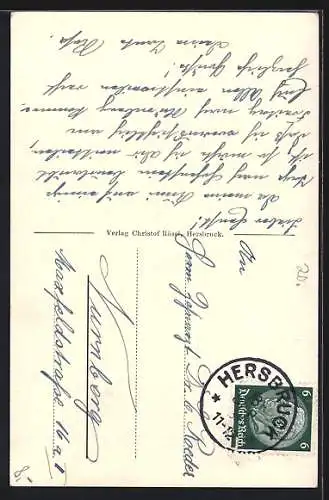 Lieber Ernst!
Da meine Frau auf einige
Tage nach
ist, so möchte ich Dir mitteilen,
daß ich voraussichtlich am
Freitag nach Nürnberg komme.
Euch Allen einstweilen recht
herzliche Grüße!
Deine Tante
Verlag Christof Rösel, Hersbruck.
An
Herrn
Dr. E. Roeder
Nürnberg
Maxfeldstraße 16 a I
20.
HERSBRUCK
11-12
6 6
Deutsches Reich